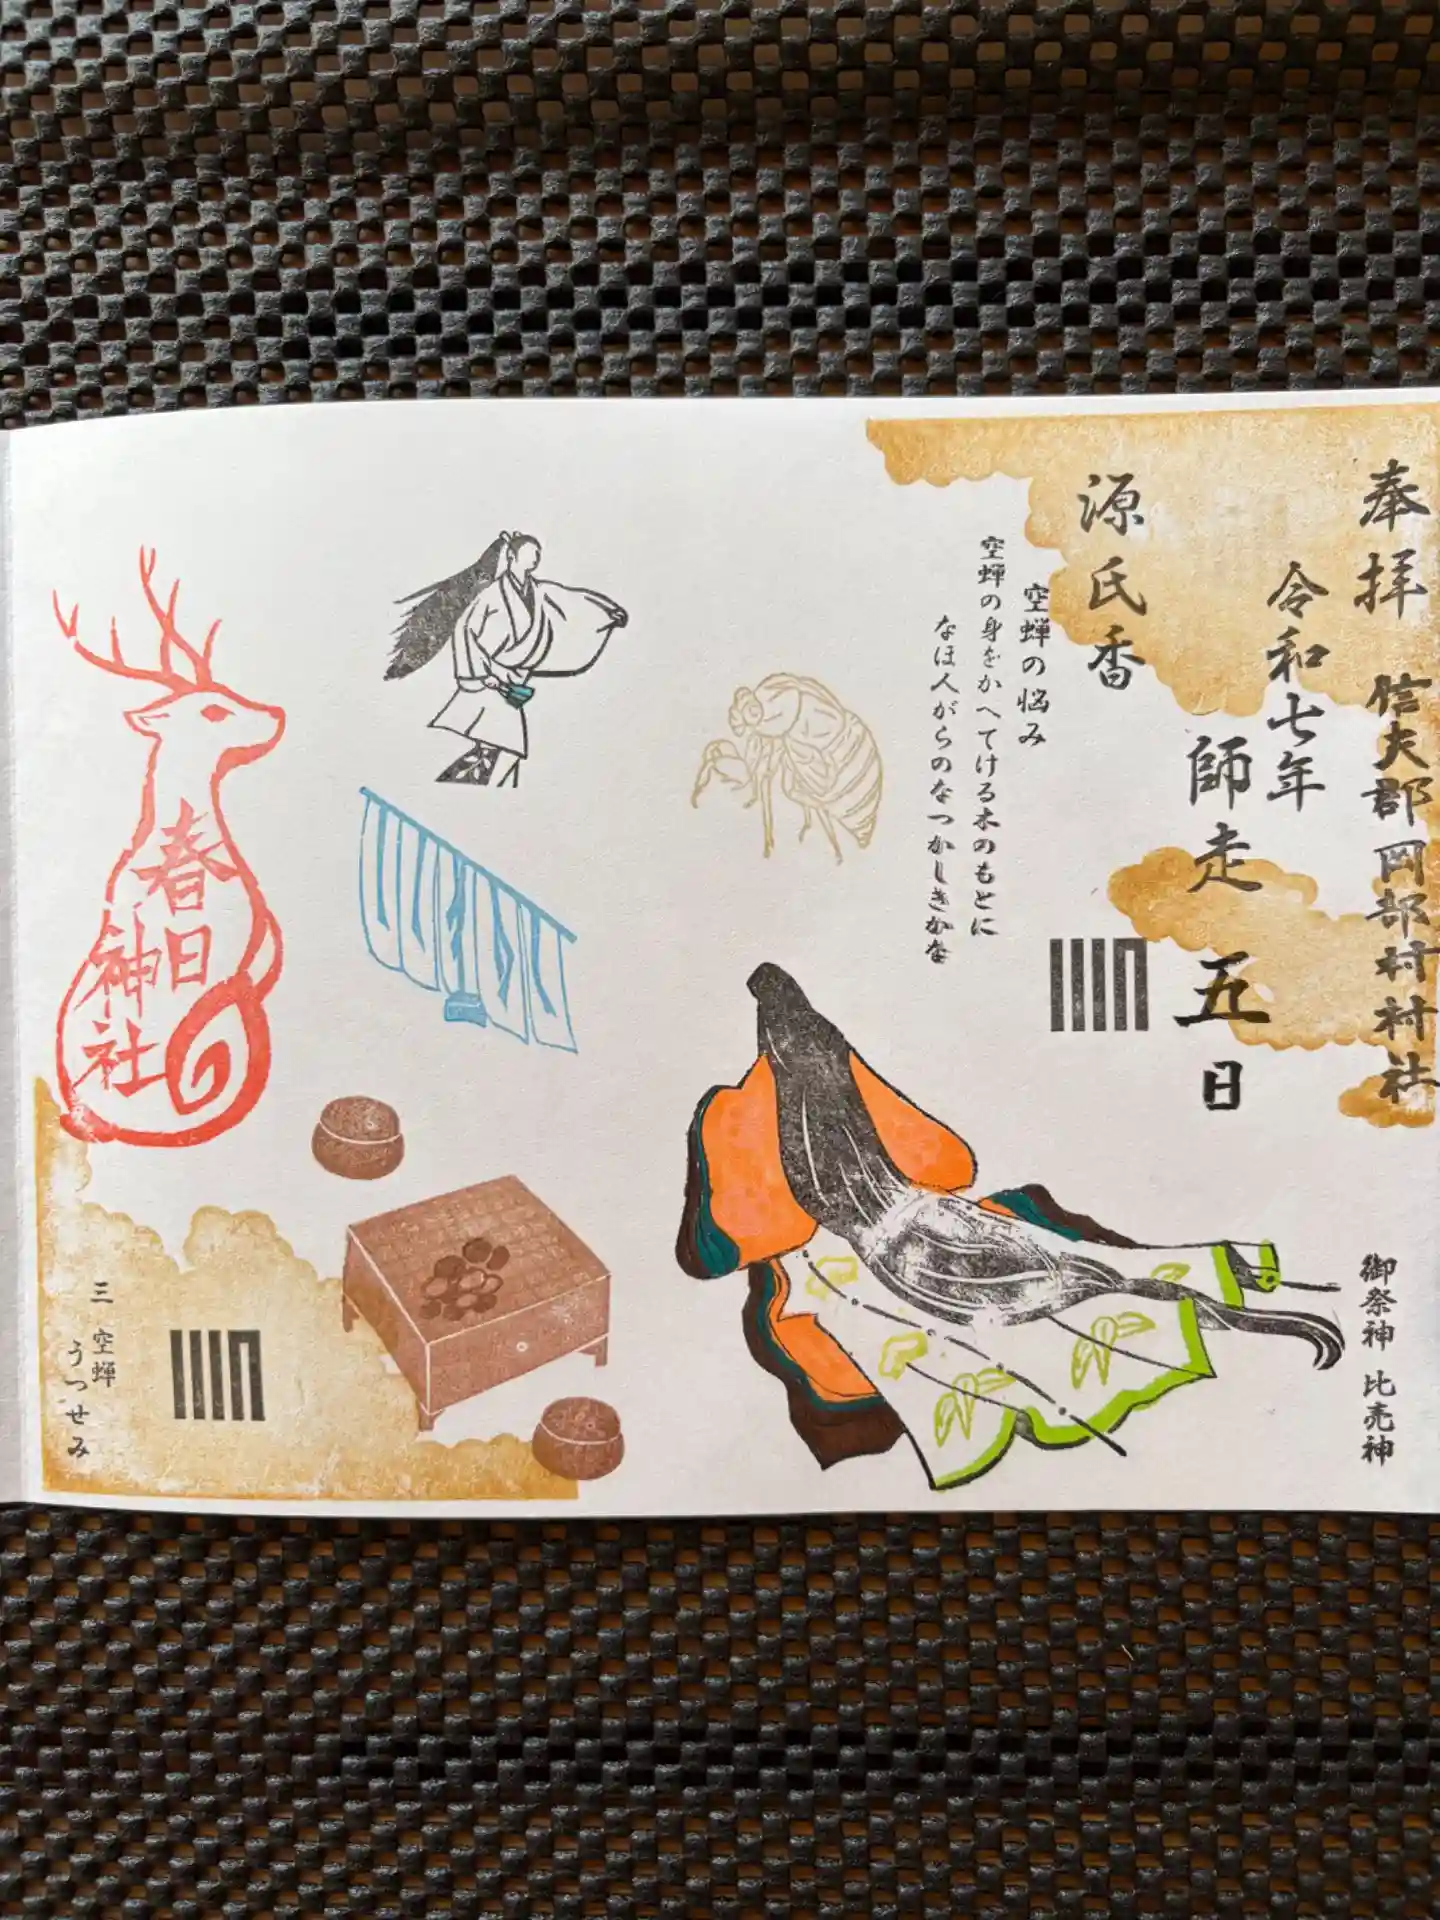 奉拝
信夫郡岡部村村社
御祭神 比売神
令和七年
師走 五日
源氏香
空蝉の悩み
空蝉の身をかへてける木のもとに
なほ人がらのなつかしきかな
春日
神社
三 空蝉
うつせみ